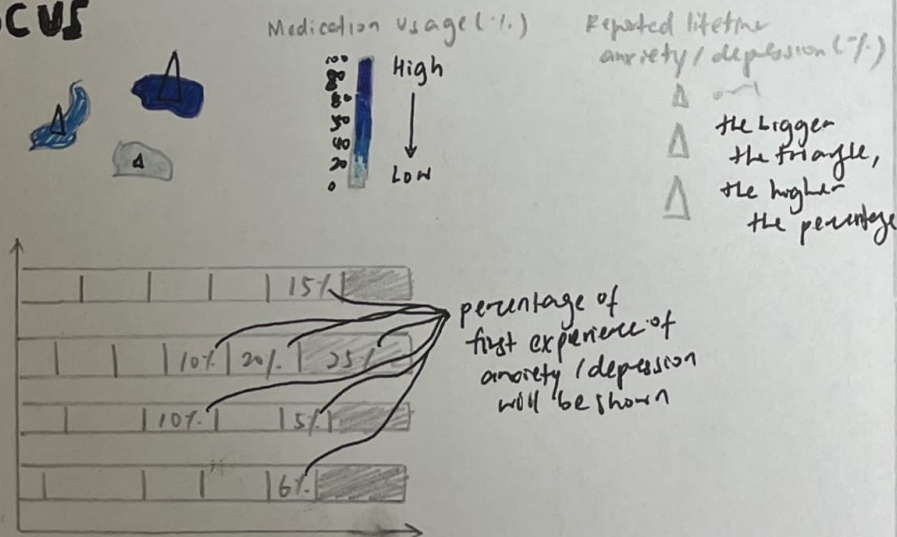 OCUS
Medication usage (%)
High
Low
20
0
Reported lifetime
anxiety / depression (%)
the bigger
the triangle,
the higher
the percentage
15%
10% 20% 25%
10% 5%
6%
percentage of
first experience of
anxiety / depression
will be shown